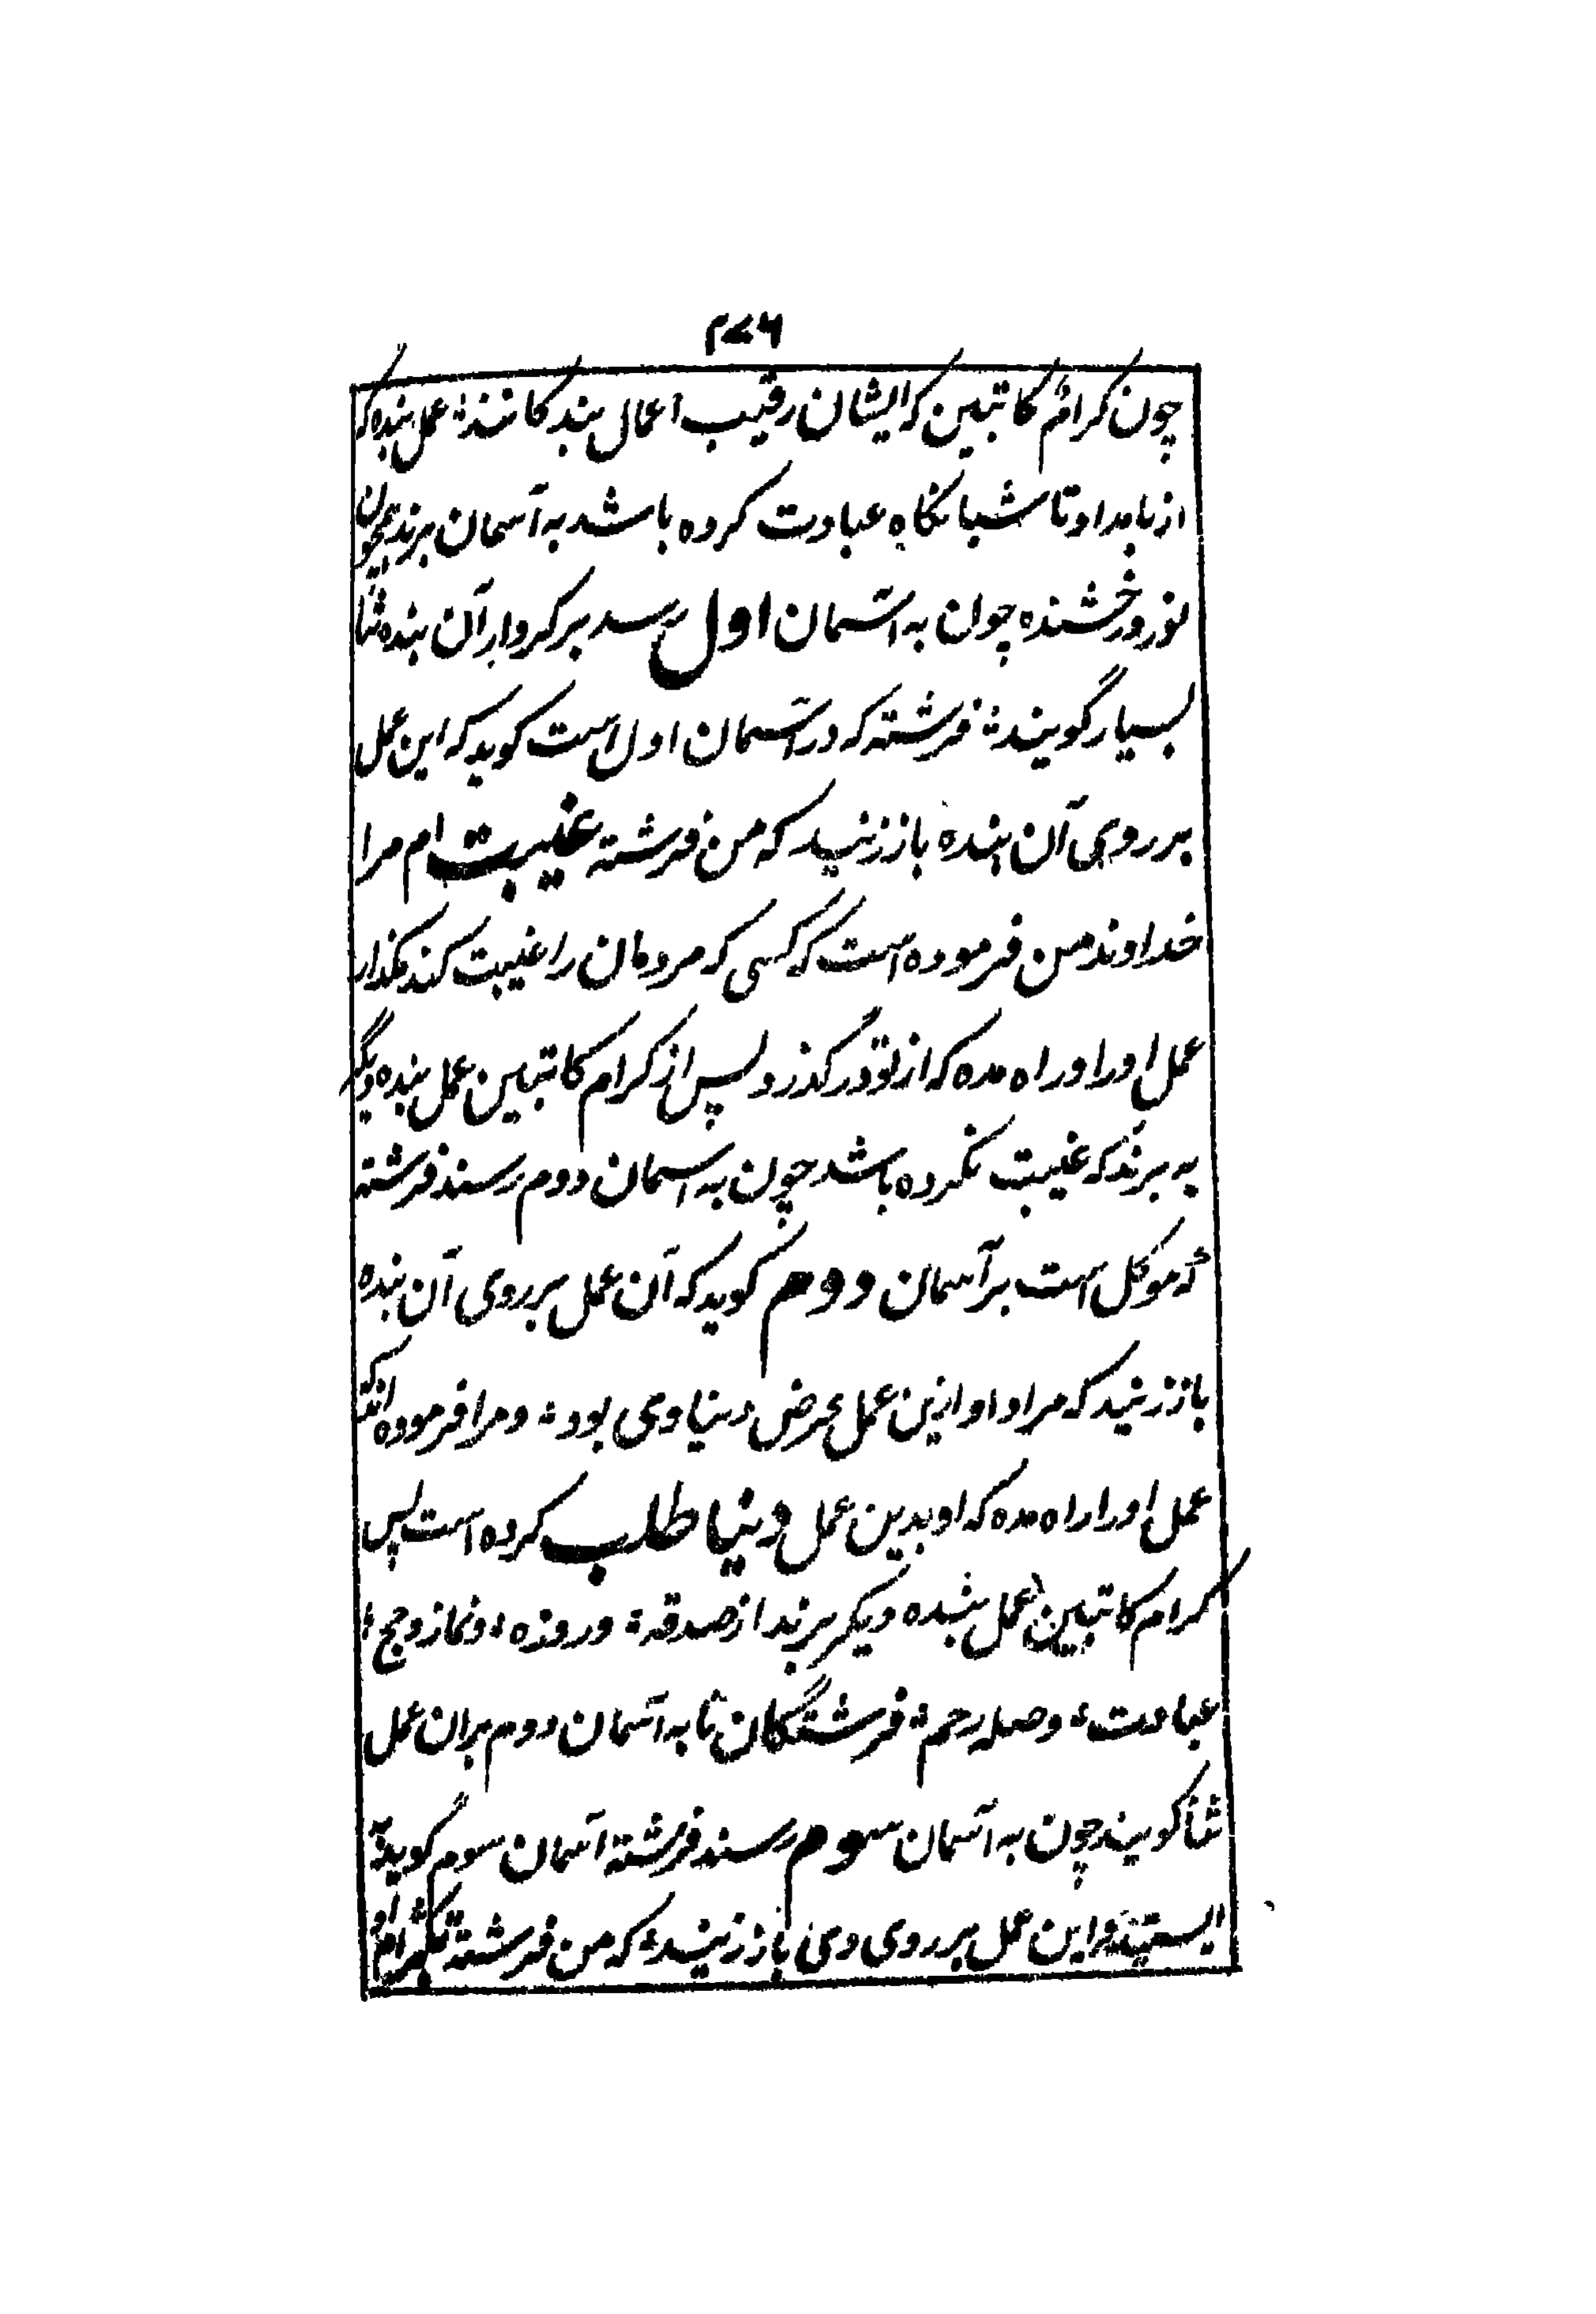 ۲۷۶
چون کرام کاتبین که ایشان رقیب اعمال بندکانند؛ عمل بنده که
از بامداد تا شبانگاه عبادت کرده باشد به آسمان برند همچون
نور درخشنده چون به آسمان اول رسد بر کردار آن بنده ثنا
بسیار گویند؛ فرشته که در آسمان اول است کوید که این عمل
بر روی آن بنده باز زنید که من فرشته غیبت ام مرا
خداوند من فرموده است که کسی که مردمان را غیبت کند مگذار
عمل او را و راه مده که از تو در گذرد پس از کرام کاتبین عمل بنده دیگر
به برند که غیبت نکرده باشد چون به اسمان دوم رسند فرشته
که موکل است بر آسمان دوم کوید که آن عمل بر روی آن بنده
باز زنید که مراد او ازین عمل عرض دنیاوی بود؛ و مرا فرموده اند که
عمل او را راه مده که او بدین عمل دنیا طلب کرده است پس
کرام کاتبین عمل بنده دیکر برند از صدقه؛ و روزه؛ و نماز و حج؛
عبادت؛ وصله رحم؛ فرشتگان تا به آسمان دوم بران عمل
ثنا کویند چون به آسمان سوم رسند فرشته آسمان سوم کوید
ایستید و این عمل بر روی وی باز زنید؛ که من فرشته تکبرام